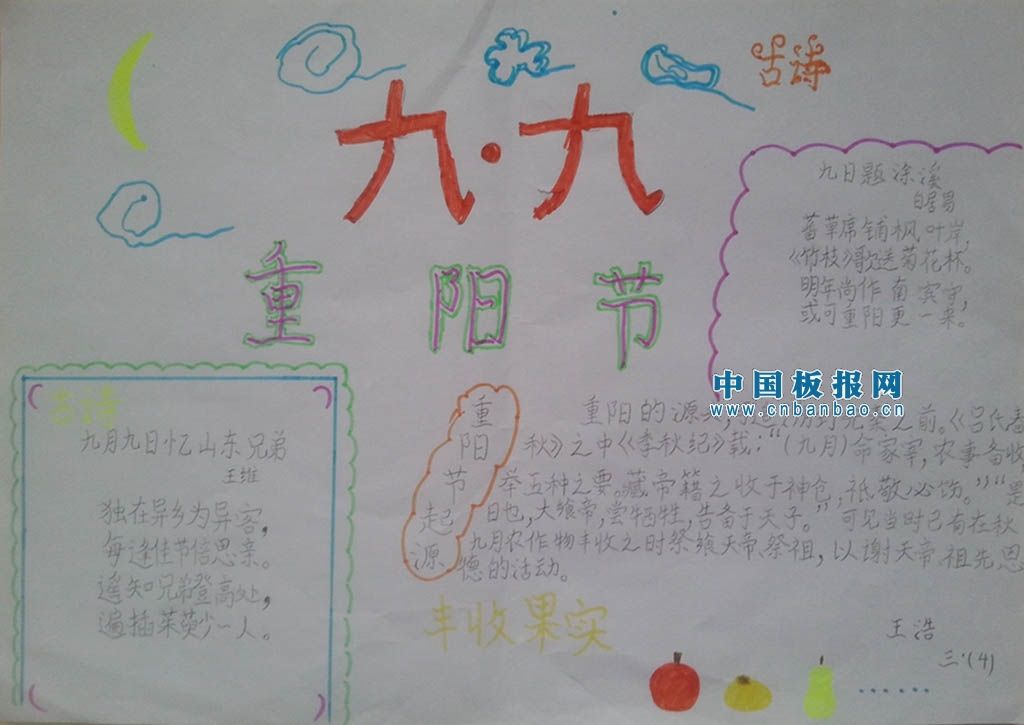 古诗
九·九
重阳节
九日题涂溪
白居易
蕃草席铺枫叶岸,
《竹枝》歌送菊花杯。
明年尚作南宾守,
或可重阳更一来。
中国板报网
www.cnbanbao.cn
古诗
九月九日忆山东兄弟
王维
独在异乡为异客,
每逢佳节倍思亲。
遥知兄弟登高处,
遍插茱萸少一人。
重阳节起源
重阳的源头, 之前。《吕氏春
秋》之中《季秋纪》载:“(九月)命家宰,农事备收
举五种之要。藏帝籍之收于神仓,祇敬必饬。”“是
日也,大飨帝,尝牺牲,告备于天子。”可见当时已有在秋
九月农作物丰收之时祭飨天帝、祭祖,以谢天帝、祖先恩
德的活动。
丰收果实
王浩
三·(4)
……